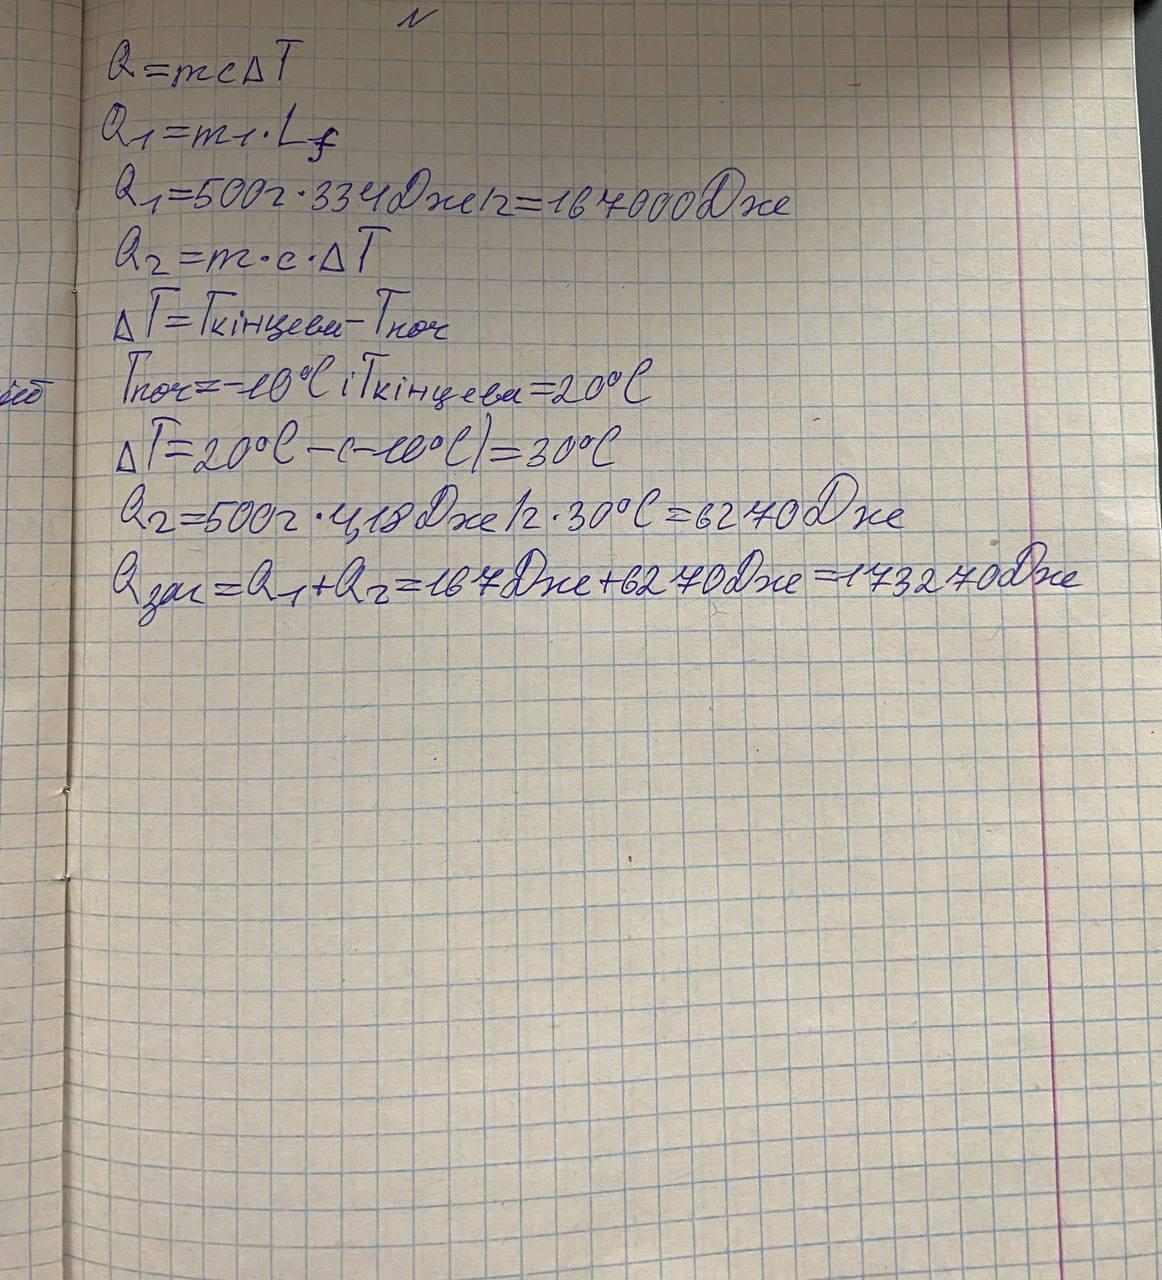 Q=mc∆T
Q1=m1·Lf
Q1=500г·334Дже/г=167000Дже
Q2=m·c·∆T
∆T=Tкінцева-Tпоч
Tпоч=-10°C і Tкінцева=20°C
∆T=20°C-(-10°C)=30°C
Q2=500г·4,18Дже/г·30°C=6270Дже
Qзаг=Q1+Q2=167Дже+6270Дже=173270Дже